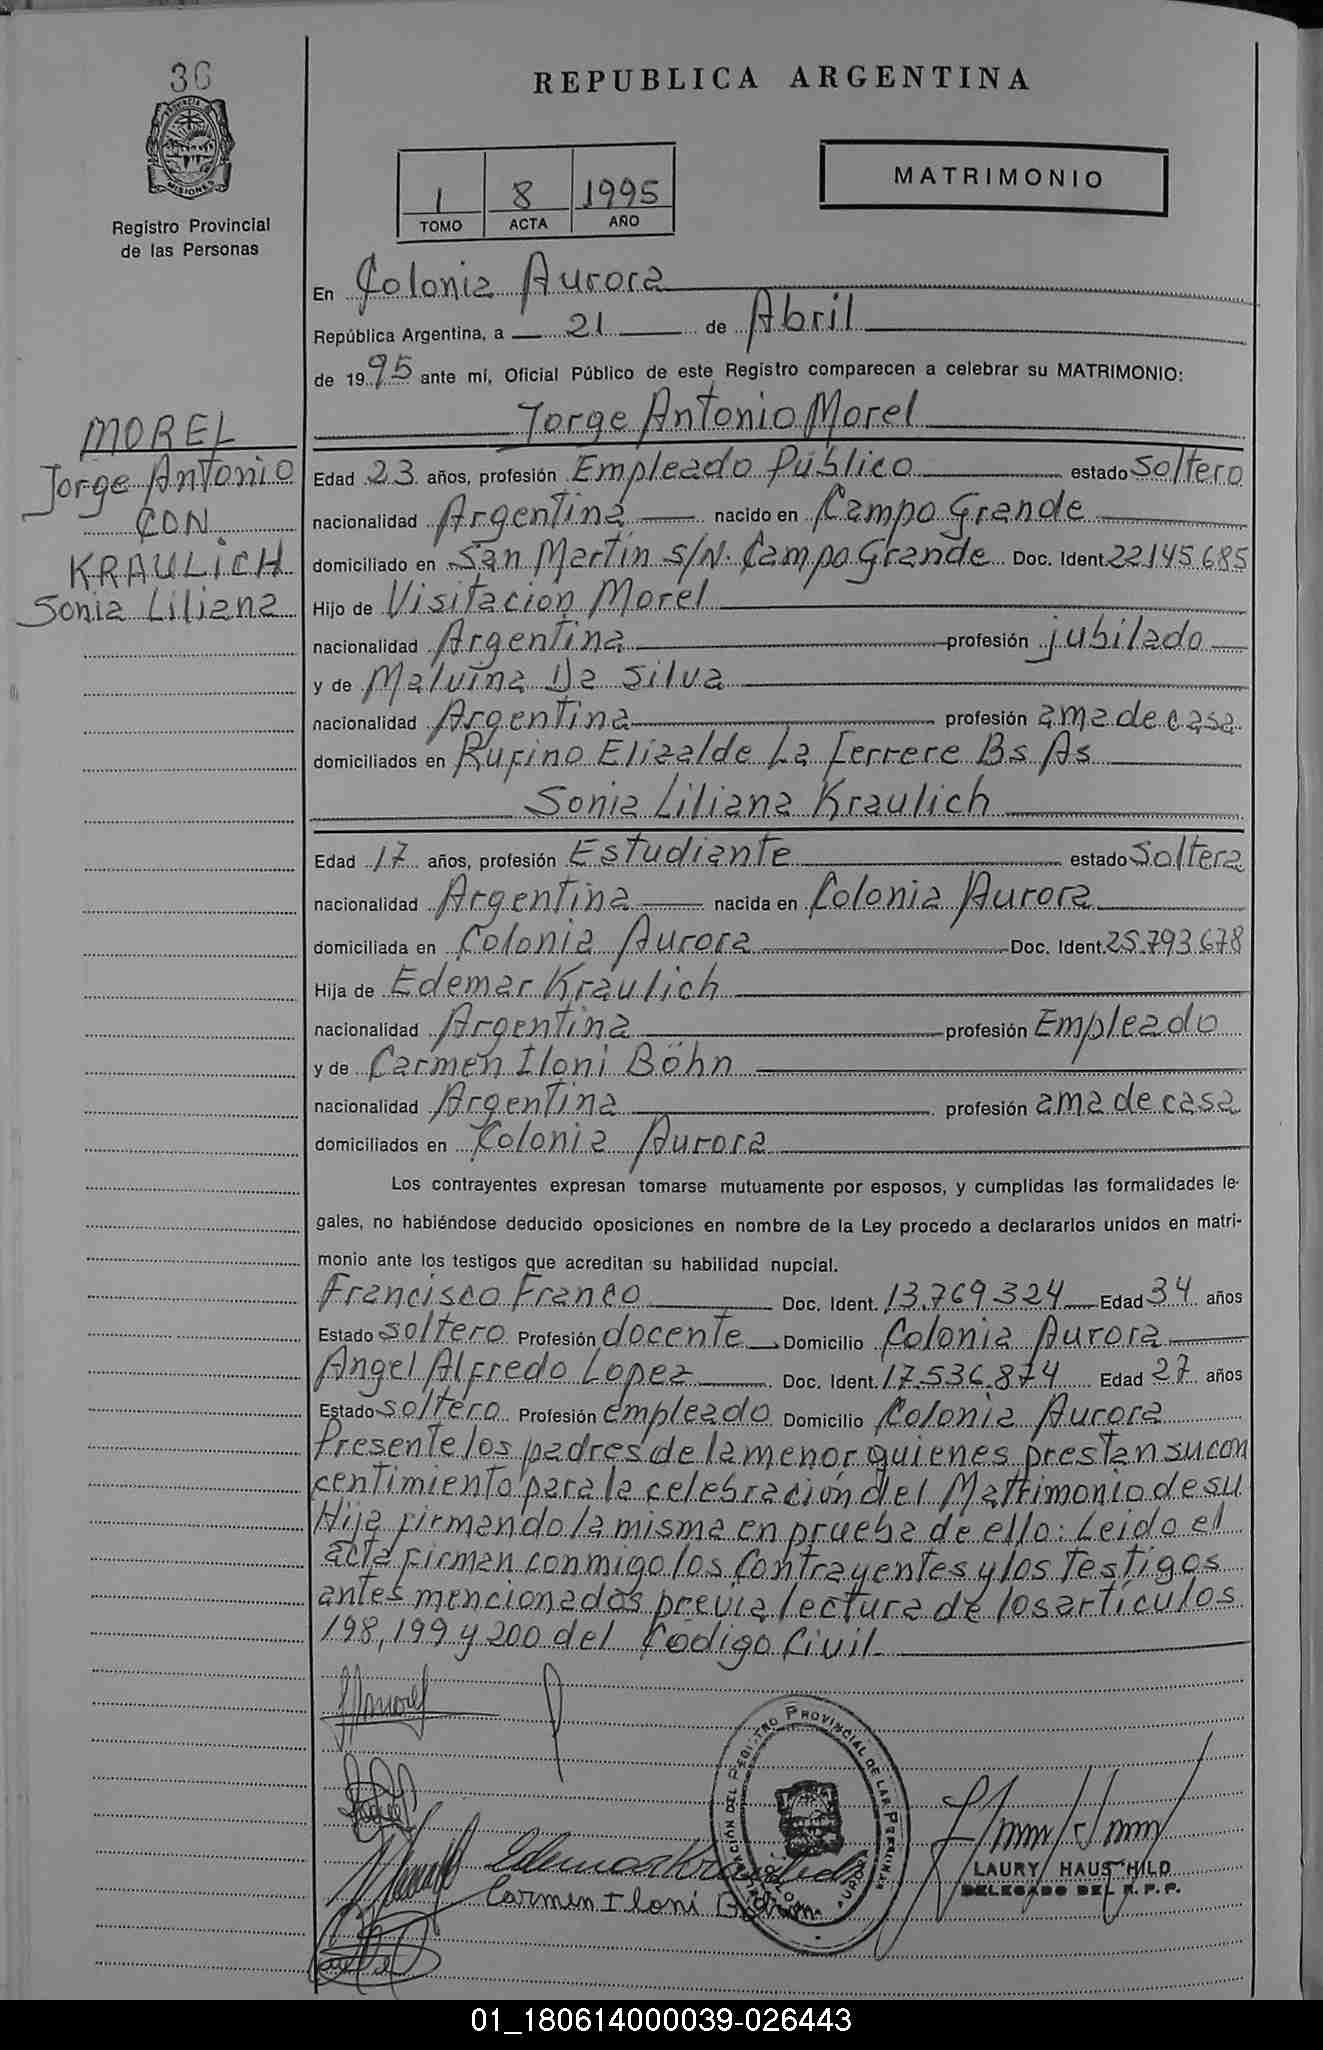 36
REPUBLICA ARGENTINA
PROVINCIA DE MISIONES
Registro Provincial
de las Personas
1 8 1995
TOMO ACTA AÑO
MATRIMONIO
En Colonia Aurora
República Argentina, a 21 de Abril
de 1995 ante mí, Oficial Público de este Registro comparecen a celebrar su MATRIMONIO:
MOREL
Jorge Antonio
CON
KRAULICH
Sonia Liliana
Jorge Antonio Morel
Edad 23 años, profesión Empleado Público estado soltero
nacionalidad Argentina nacido en Campo Grande
domiciliado en San Martín s/N. Campo Grande Doc. Ident. 22.145.685
Hijo de Visitacion Morel
nacionalidad Argentina profesión jubilado
y de Malvina Da Silva
nacionalidad Argentina profesión ama de casa
domiciliados en Rufino Elizalde La Ferrere Bs As
Sonia Liliana Kraulich
Edad 17 años, profesión Estudiante estado soltera
nacionalidad Argentina nacida en Colonia Aurora
domiciliada en Colonia Aurora Doc. Ident. 25.793.678
Hija de Edemar Kraulich
nacionalidad Argentina profesión Empleado
y de Carmen Iloni Böhn
nacionalidad Argentina profesión ama de casa
domiciliados en Colonia Aurora
Los contrayentes expresan tomarse mutuamente por esposos, y cumplidas las formalidades le-
gales, no habiéndose deducido oposiciones en nombre de la Ley procedo a declararlos unidos en matri-
monio ante los testigos que acreditan su habilidad nupcial.
Francisco Franco Doc. Ident. 13.769.324 Edad 34 años
Estado soltero Profesión docente Domicilio Colonia Aurora
Angel Alfredo Lopez Doc. Ident. 17.536.874 Edad 27 años
Estado soltero Profesión empleado Domicilio Colonia Aurora
Presente los padres de la menor quienes prestan su con
centimiento para la celebración del Matrimonio de su
Hija firmando la misma en prueba de ello: Leido el
acta firman conmigo los Contrayentes y los testigos
antes mencionados previa lectura de los artículos
198, 199 y 200 del Código Civil
Morel
Edemar Kraulich
Carmen Iloni
DELEGACIÓN DEL REGISTRO PROVINCIAL DE LAS PERSONAS
LAURY HAUSCHILD
DELEGADO DEL R.P.P.
01_180614000039-026443